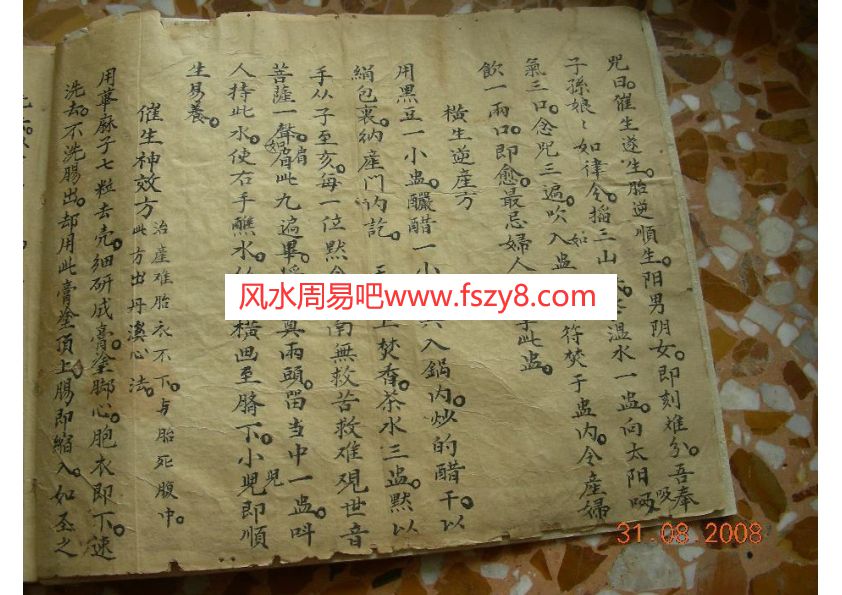 咒曰。催生遂生。胎逆順生。阳男阴女。即刻难分。吾奉
子孫娘〻如律令。搯三山 温水一盅。向太阳 吸
氣三口。念咒三遍。吹入盅 如 符焚于盅内。令産婦
飲一兩口。即愈。最忌婦人 此盅。
橫生逆産方
用黑豆一小盅。釅醋一小 入鍋内。炒的醋干。以
絹包裹。納産門内訖。 焚香。茶水三盅。默以
手从子至亥。每一位默 南無救苦救难現世音
菩薩一聲。 此九遍畢。 兩頭留当中一盅。叫
人持此水。使右手蘸水。 橫画至臍下。小兒即順
生易養。
催生神效方 治産难胎衣不下。与胎死腹中。
此方出丹溪心法。
用萆麻子七粒去壳。细研成膏。塗脚心。胞衣即下。速
洗去。不洗腸出。却用此膏塗頂上。腸即縮入。如圣之
风水周易吧www.fszy8.com
31.08.2008